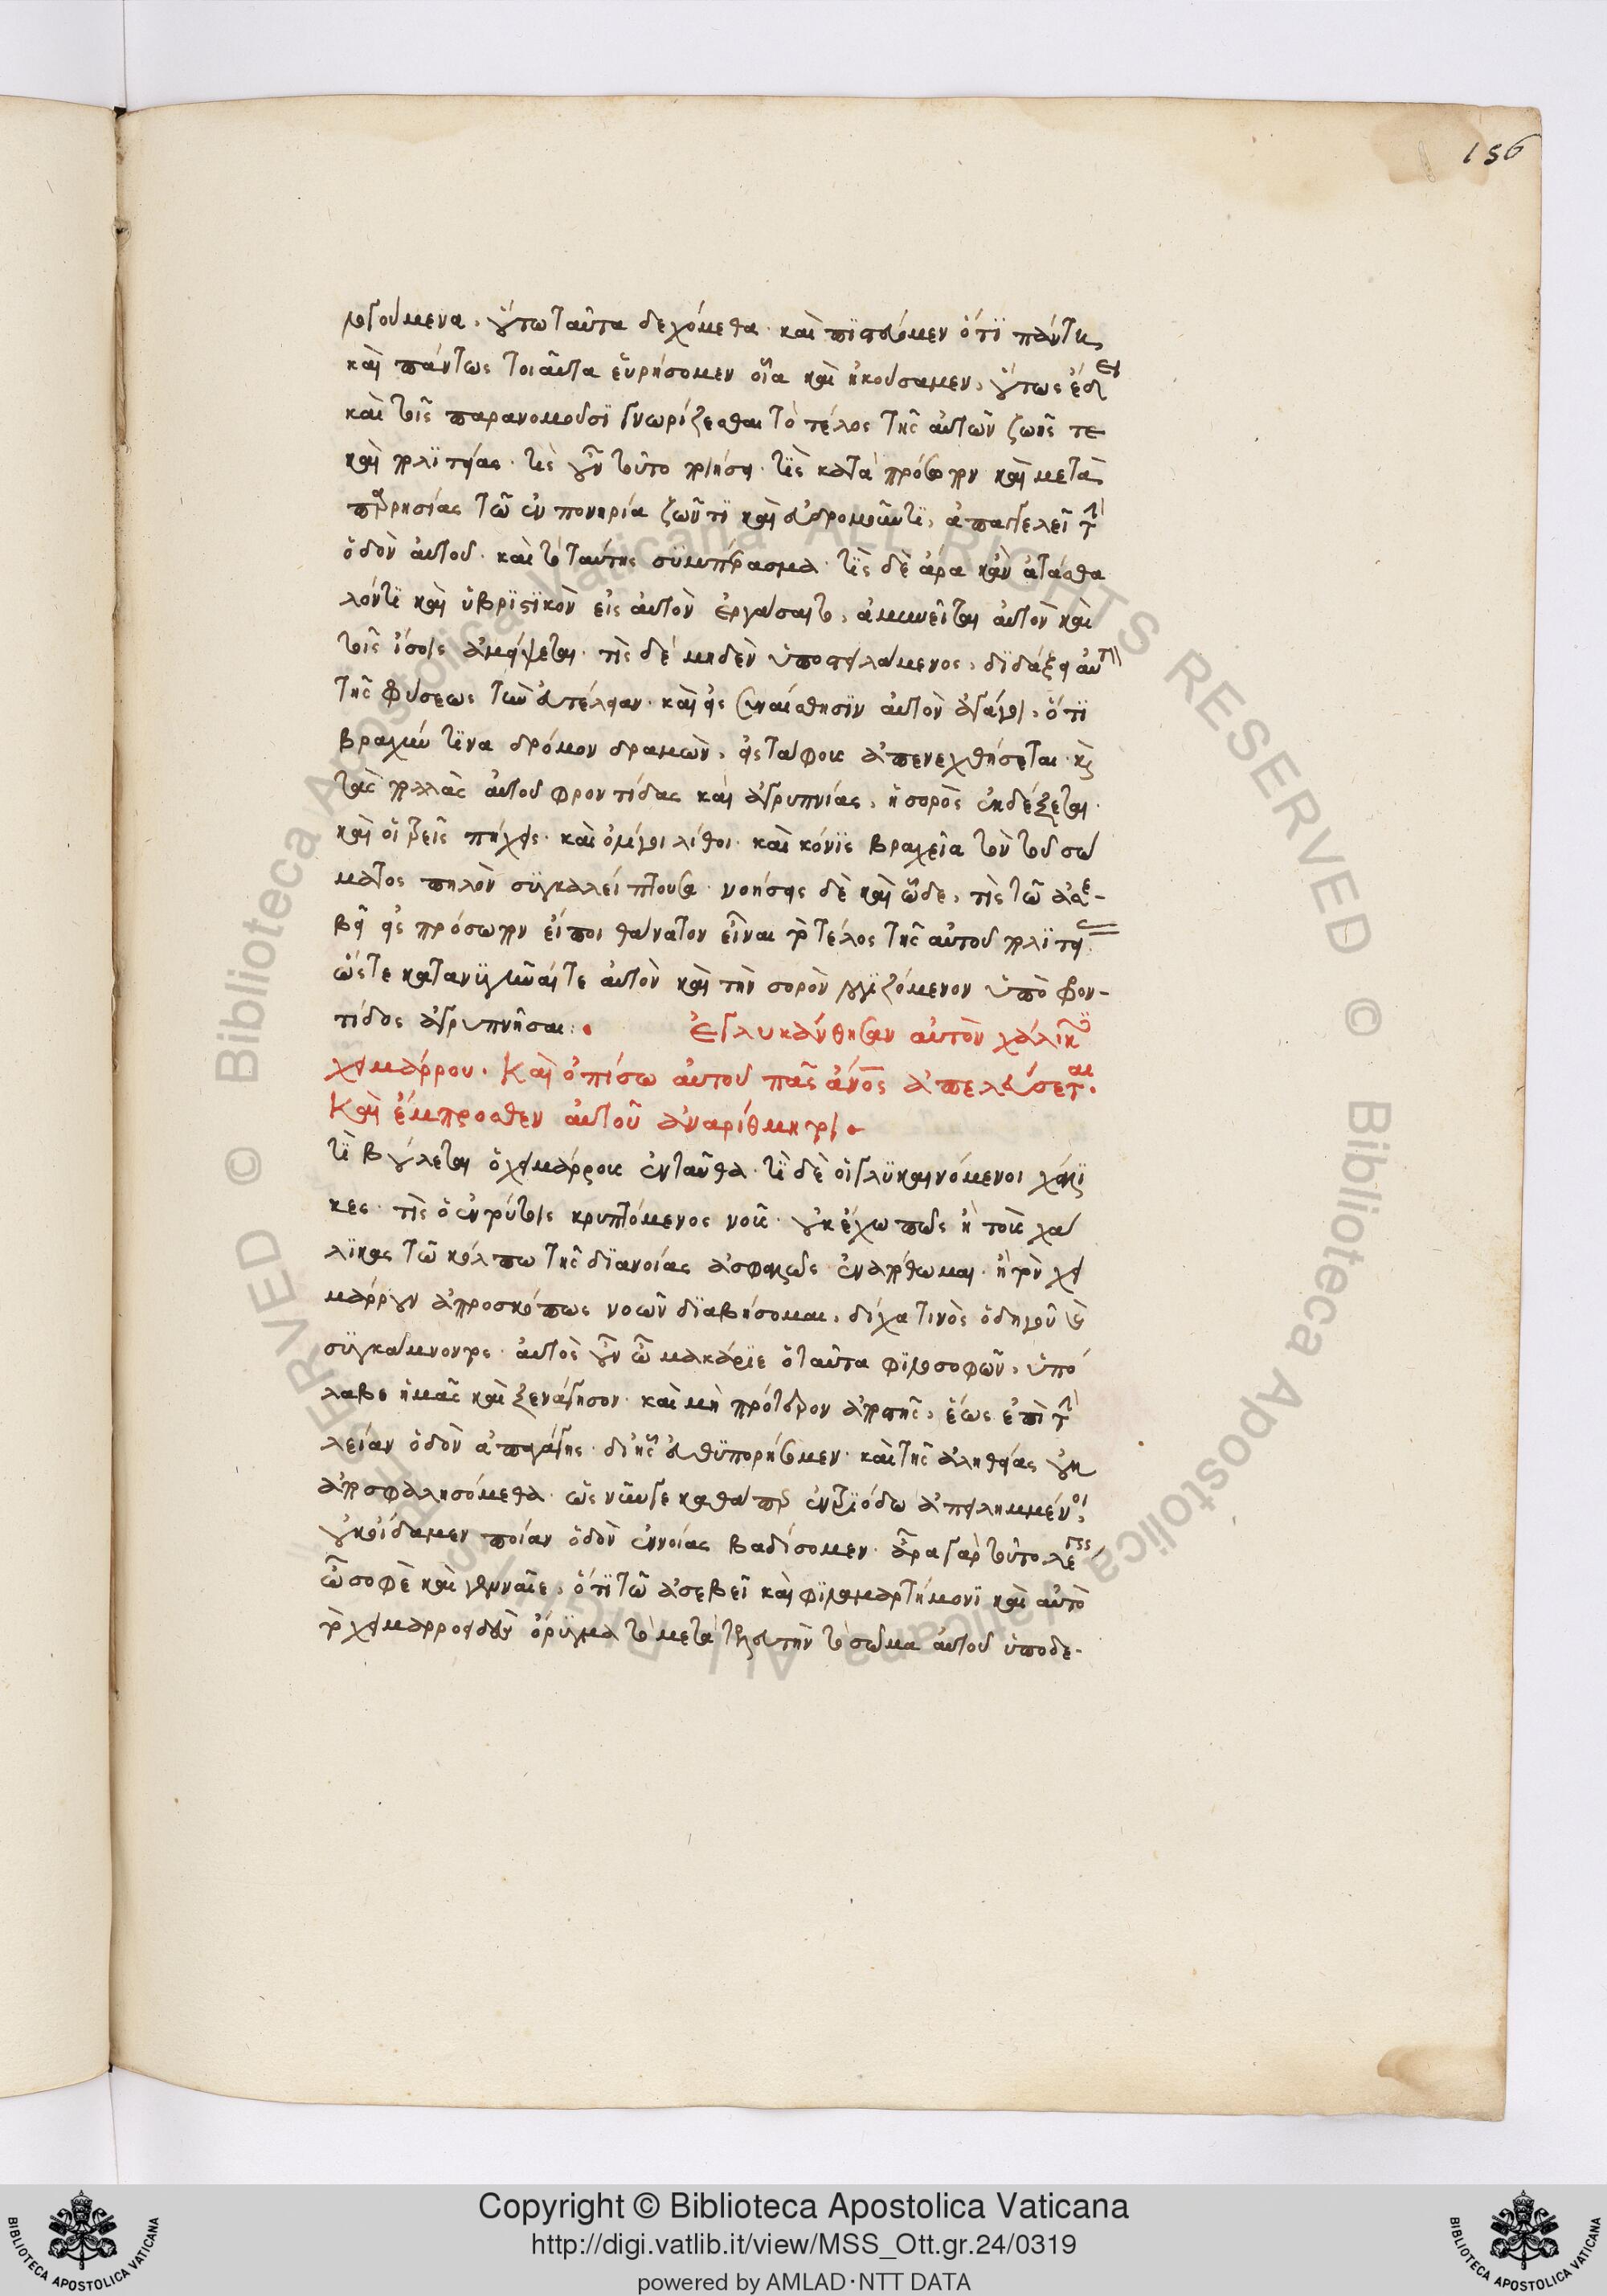 156
λογούμενα, οὕτω ταῦτα δεχόμεθα· καὶ πϊστεύομεν ὅτϊ πάντη
καὶ πάντως τοιαῦτα εὑρήσομεν οἷα καὶ ἠκούσαμεν, οὕτως ἔδει
καὶ τοῖς παρανομοῦσϊ γνωρίζεσθαι τὸ τέλος τῆς αὐτῶν ζωῆς τε
καὶ πολϊτείας· τίς οὖν τοῦτο ποιήσει· τίς κατὰ πρόσωπον καὶ μετὰ
παρρησίας τῶ ἐν πονηρία ζῶντϊ καὶ εὐδρομοῦντϊ, ἀπαγγελεῖ τὴν
ὁδὸν αὐτοῦ· καὶ τὸ ταύτης συμπέρασμα· τίς δὲ ἄρα κἂν ἀτάσθα
λόν τϊ καὶ ὑβρϊστϊκὸν εἰς αὐτὸν ἐργάσαιτο, ἀμυνεῖται αὐτὸν καὶ
τοῖς ἴσοις ἀμείψεται· τίς δὲ μηδὲν ὑποστειλάμενος, δϊδάξει αὐτὴν
τῆς φύσεως τὴν εὐτέλειαν· καὶ εἰς συναίσθησϊν αὐτὸν ἀγάγοι, ὅτϊ
βραχύν τϊνα δρόμον δραμὼν, εἰς τάφους ἀπενεχθήσεται· καὶ
τὰς πολλὰς αὐτοῦ φροντίδας καὶ ἀγρυπνίας, ἡ σορὸς ἐκδέξεται·
καὶ οἱ τρεῖς πήχεις· καὶ ὀλίγοι λίθοι· καὶ κόνϊς βραχεῖα τὸν τοῦ σώ
ματος πηλὸν συγκαλύπτουσα· νοήσεις δὲ καὶ ὧδε, τίς τῶ ἀσε-
βεῖ εἰς πρόσωπον εἴποι θάνατον εἶναι τὸ τέλος τῆς αὐτοῦ πολϊτείας
ὥστε κατανυγῆναί τε αὐτὸν καὶ τὴν σορὸν λογϊζόμενον ὑπὸ φρον-
τίδος ἀγρυπνῆσαι:
Ἐγλυκάνθησαν αὐτὸν χάλικες
χειμάρρου. Καὶ ὀπίσω αὐτοῦ πᾶς ἄνος ἀπελεύσεται.
Καὶ ἔμπροσθεν αὐτοῦ ἀναρίθμητοι
τϊ βούλεται ὁ χειμάρρους ἐνταῦθα· τϊ δὲ οἱ γλυκαινόμενοι χάλϊ
κες· τίς ὁ ἐν τούτοις κρυπτόμενος νοῦς· οὐκ ἔχω πῶς ἢ τοὺς χά
λϊκας τῶ κόλπω τῆς δϊανοίας ἀσφαλῶς ἐναπόθωμαι· ἢ τὸν χει
μάρρουν ἀπροσκόπως νοῶν δϊαβήσομαι, δίχα τινὸς ὁδηγοῦντος
συγκάμνοντος· αὐτὸς οὖν ὦ μακάρϊε ὁ ταῦτα φϊλοσοφῶν, ὑπό
λαβε ἡμᾶς καὶ ξενάγησον· καὶ μὴ πρότερον ἀποστῆς, ἕως ἐπὶ τὴν
λείαν ὁδὸν ἀπαγάγης· δι' ἧς εὐθϋπορήσομεν· καὶ τῆς ἀληθείας οὐκ
ἀποσφαλησόμεθα· ὡς νῦν γε καθάπερ ἐν τριόδω ἀπειλημμένοι,
οὐκ οἴδαμεν ποίαν ὁδὸν ἐννοίας βαδίσομεν· ἆρα γὰρ τοῦτο λέγεις
ὦ σοφὲ καὶ γενναῖε, ὅτϊ τῶ ἀσεβεῖ καὶ φϊλαμαρτήμονϊ καὶ αὐτὸ
τὸ χειμαρροειδὲς ὄρυγμα τὸ μετὰ τελευτὴν τὸ σῶμα αὐτοῦ ὑποδε-
Copyright © Biblioteca Apostolica Vaticana
http://digi.vatlib.it/view/MSS_Ott.gr.24/0319
powered by AMLAD·NTT DATA